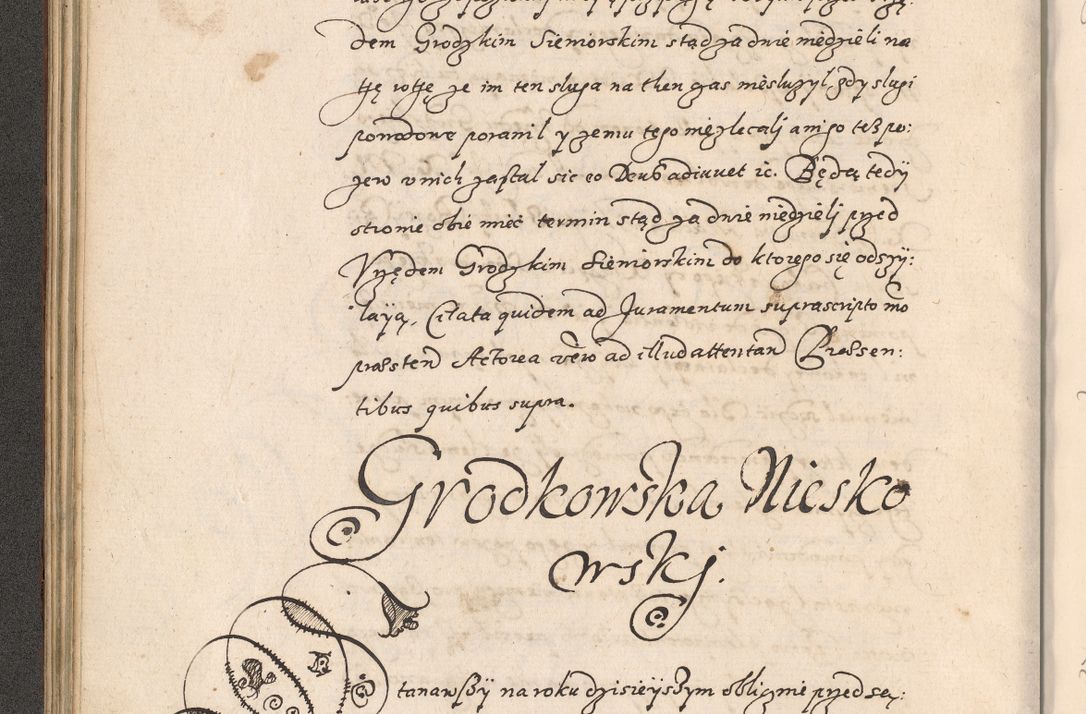 dem Grodzkim Sieniorskim stąd za dwie niedzieli na
tzę rotzę ze im ten sługa na then czas niesłuzył gdy slugi
powodowe poranił y zemu tego niezlecalj anigo tesz po:
zew v nich zastał sic eo Deus adiuuet ic. Będą tedy
stronie obie mieć termin stąd za dwie niedzieli przed
Vrzędem Grodzkim Sieniorskim do ktorego się odszy:
łayą, Citata quidem ad Juramentum suprascripto mo
praesten Actorea vero ad illud attentan Praesen:
tibus quibus supra.
Grodkowska Niesko
wskj.
tanąwszy na roku dzisieyszym oblicznie przed są: